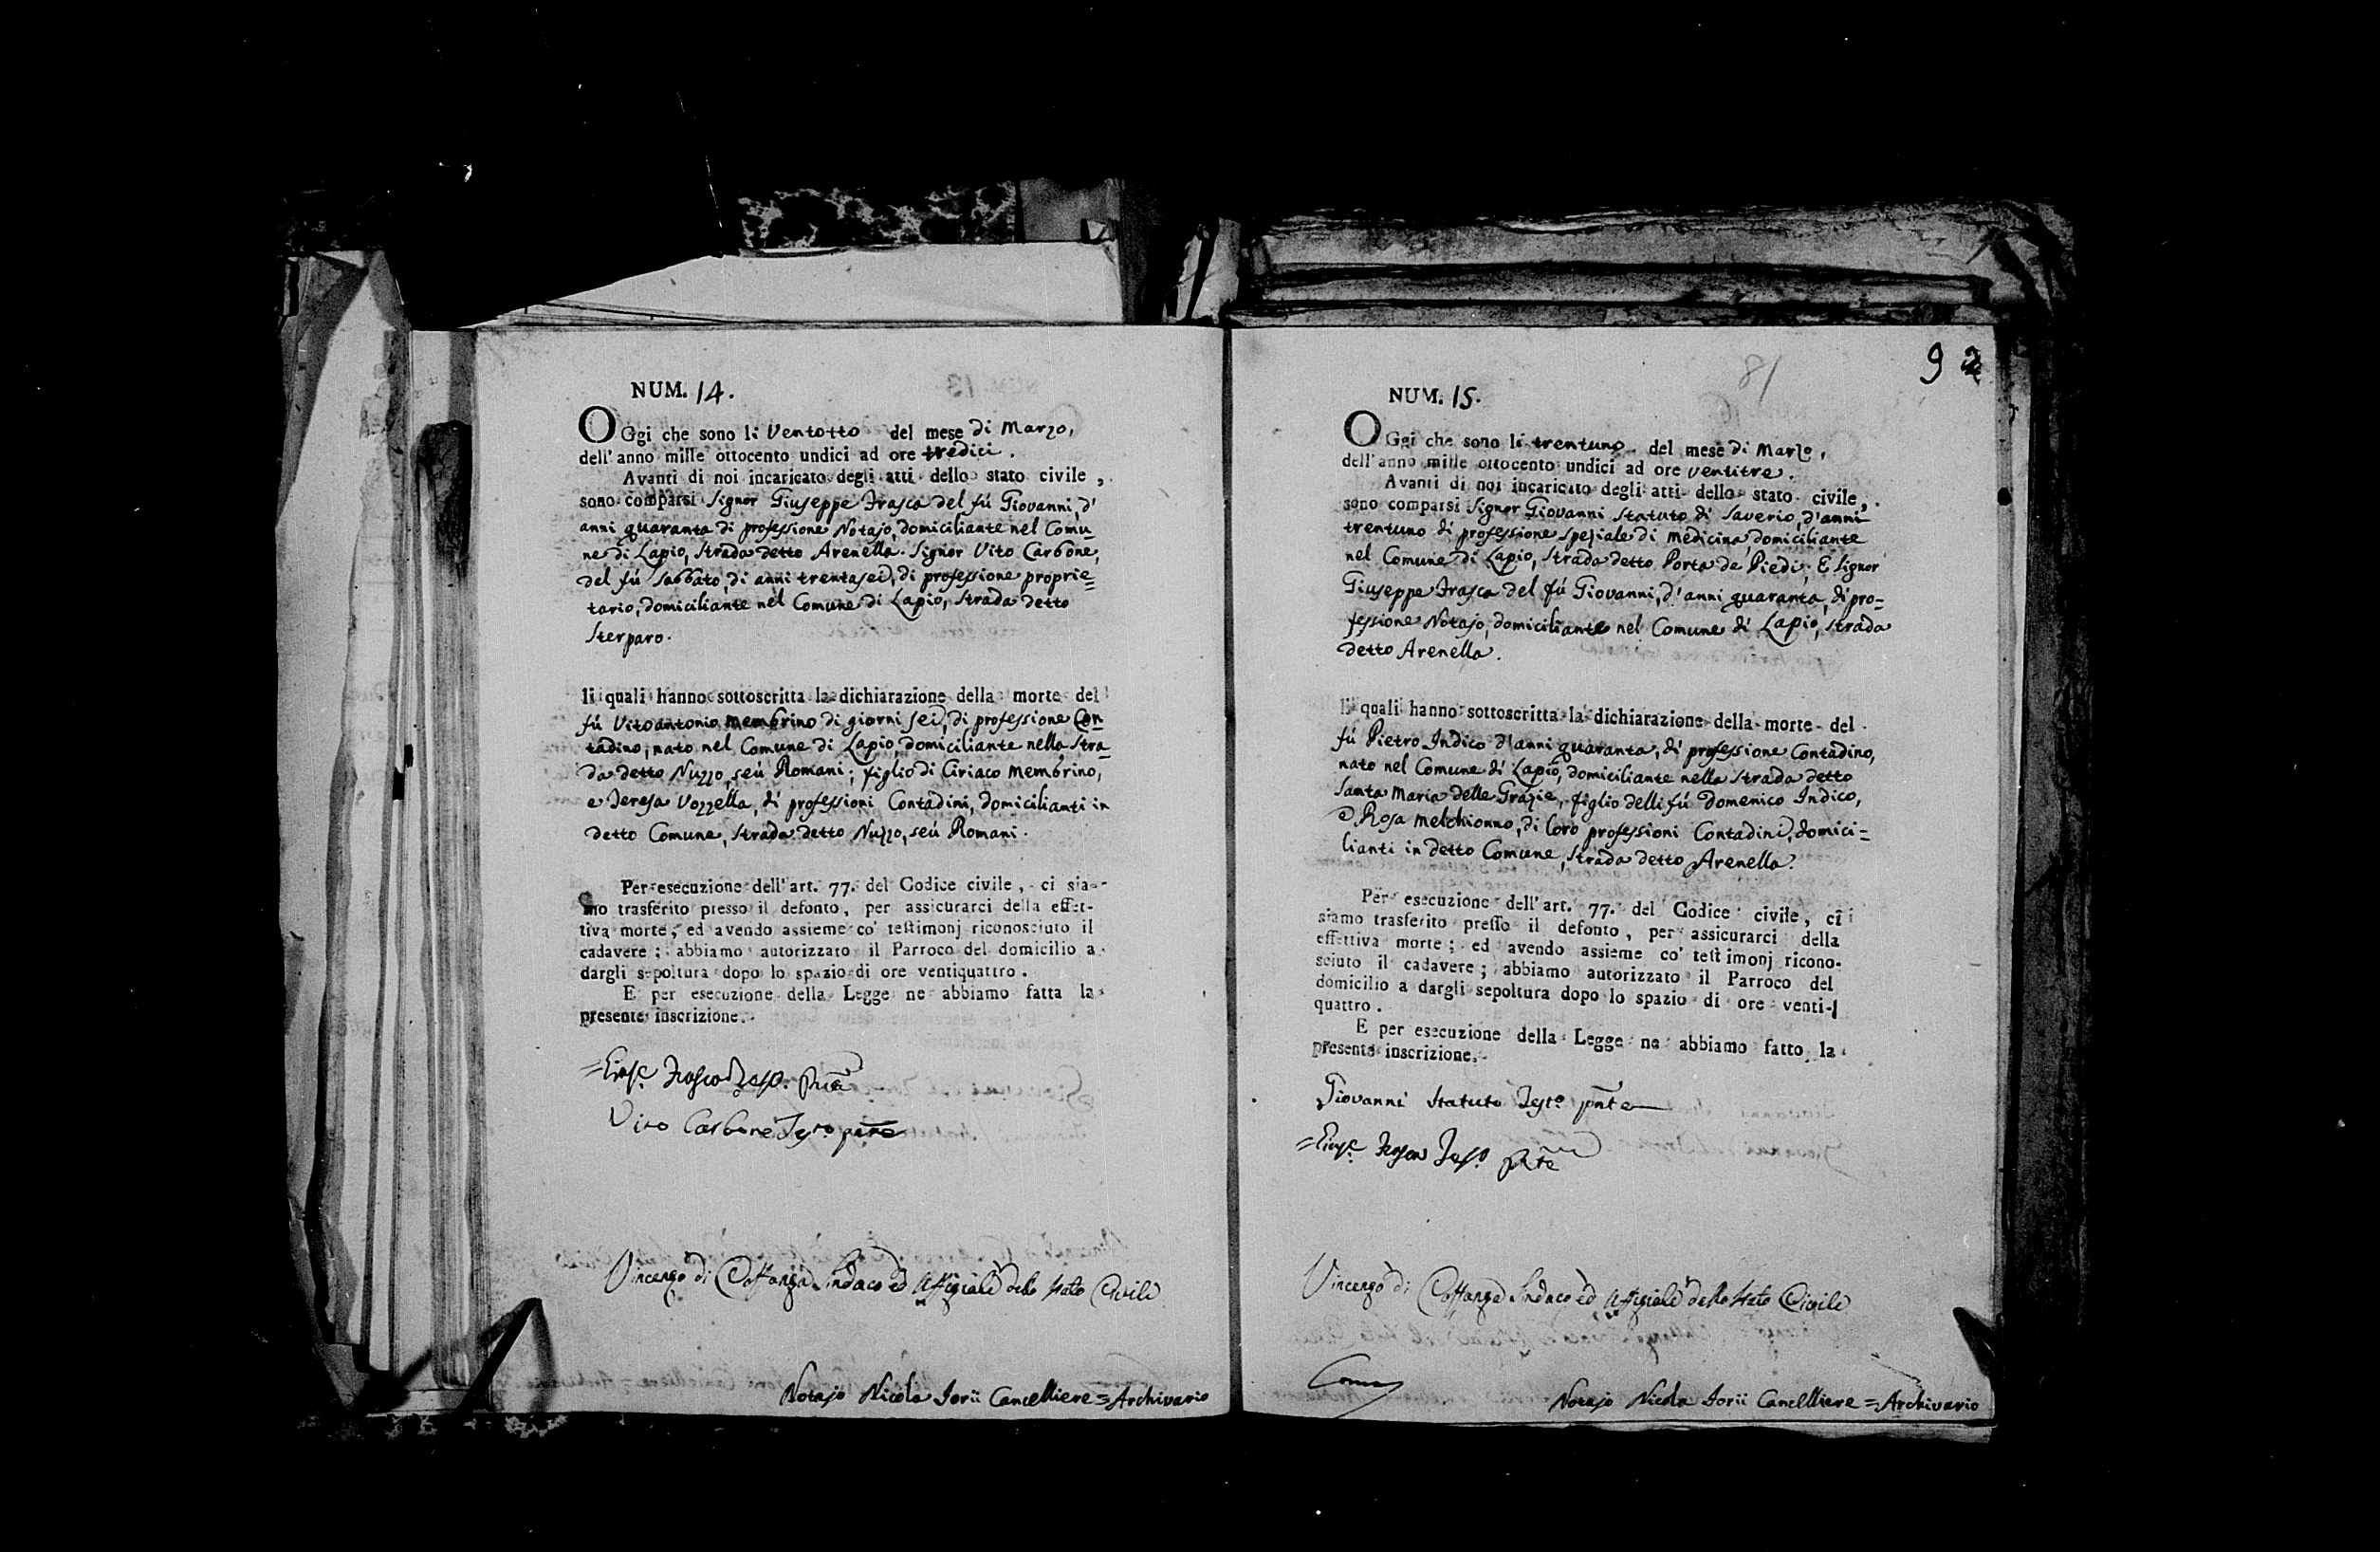 NUM. 14.
OGgi che sono li Ventotto del mese di Marzo,
dell'anno mille ottocento undici ad ore tredici.
Avanti di noi incaricato degli atti dello stato civile,
sono comparsi Signor Giuseppe Frasca del fú Giovanni, d'
anni quaranta di professione Notajo, domiciliante nel Comu=
ne di Lapio, Strada detto Arenella. Signor Vito Carbone,
del fú Sabbato, di anni trentasei, di professione proprie=
tario, domiciliante nel Comune di Lapio, Strada detto
Sterparo.
li quali hanno sottoscritta la dichiarazione della morte del
fú Vitoantonio Membrino di giorni sei, di professione Con=
tadino, nato nel Comune di Lapio, domiciliante nella Stra=
da detto Nuzzo, seú Romani; figlio di Ciriaco Membrino,
e Teresa Vozzella, di professioni Contadini, domicilianti in
detto Comune, Strada detto Nuzzo, seú Romani.
Per esecuzione dell'art. 77. del Codice civile, ci sia-
mo trasferito presso il defonto, per assicurarci della effet-
tiva morte; ed avendo assieme co' testimonj riconosciuto il
cadavere; abbiamo autorizzato il Parroco del domicilio a
dargli sepoltura dopo lo spazio di ore ventiquattro.
E per esecuzione della Legge ne abbiamo fatta la
presente inscrizione.
=Gius.e Frasca Tes.o
Vito Carbone Tes.to pnte
Vincenzo di Costanza Sindaco ed Uffiziale dello Stato Civile
Notajo Nicola Iorii Cancelliere=Archivario
92
81
NUM. 15.
OGgi che sono li trentuno del mese di Marzo,
dell'anno mille ottocento undici ad ore ventitre.
Avanti di noi incaricato degli atti dello stato civile,
sono comparsi Signor Giovanni Statuto di Saverio, d'anni
trentuno di professione speziale di medicina domiciliante
nel Comune di Lapio, Strada detto Porta de Piedi; E Signor
Giuseppe Frasca del fú Giovanni, d'anni quaranta, di pro=
fessione Notajo, domiciliante nel Comune di Lapio, Strada
detto Arenella.
li quali hanno sottoscritta la dichiarazione della morte del
fú Pietro Indico d'anni quaranta, di professione Contadino,
nato nel Comune di Lapio, domiciliante nella Strada detto
Santa Maria delle Grazie, figlio delli fú Domenico Indico,
e Rosa Melchionno, di loro professioni Contadini, domici=
lianti in detto Comune, Strada detto Arenella.
Per esecuzione dell'art. 77. del Codice civile, ci
siamo trasferito presso il defonto, per assicurarci della
effettiva morte; ed avendo assieme co' testimonj ricono-
sciuto il cadavere; abbiamo autorizzato il Parroco del
domicilio a dargli sepoltura dopo lo spazio di ore venti-
quattro.
E per esecuzione della Legge ne abbiamo fatto la
presente inscrizione.
Giovanni Statuto Tes.to pnte
=Gius.e Frasca Tes.o pnte
Vincenzo di Costanza Sindaco ed Uffiziale dello Stato Civile
Notajo Nicola Iorii Cancelliere=Archivario